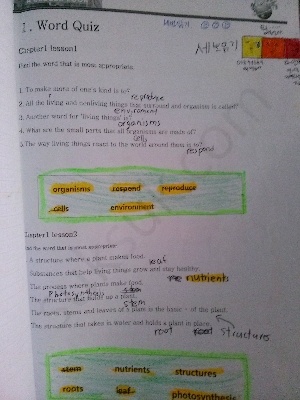 1. Word Quiz
Chapter1 lesson1
세포분기
Put the word that is most appropriate.
1. To make more of one's kind is to?
reproduce
2. All the living and nonliving things that surround and organism is called?
enviroment
3. Another word for 'living things' is?
organisms
4. What are the small parts that all organisms are made of?
cells
5. The way living things react to the world around them is to?
respond
organisms respond reproduce
cells environment
Chapter1 lesson3
Put the word that is most appropriate
A structure where a plant makes food.
leaf
Substances that help living things grow and stay healthy.
nutrients
The process where plants make food.
Photosynthesis
The structure that holds up a plant.
stem
The roots, stems and leaves of a plant is the basic - of the plant.
The structure that takes in water and holds a plant in place.
root structures
stem nutrients structures
roots leaf photosynthesis